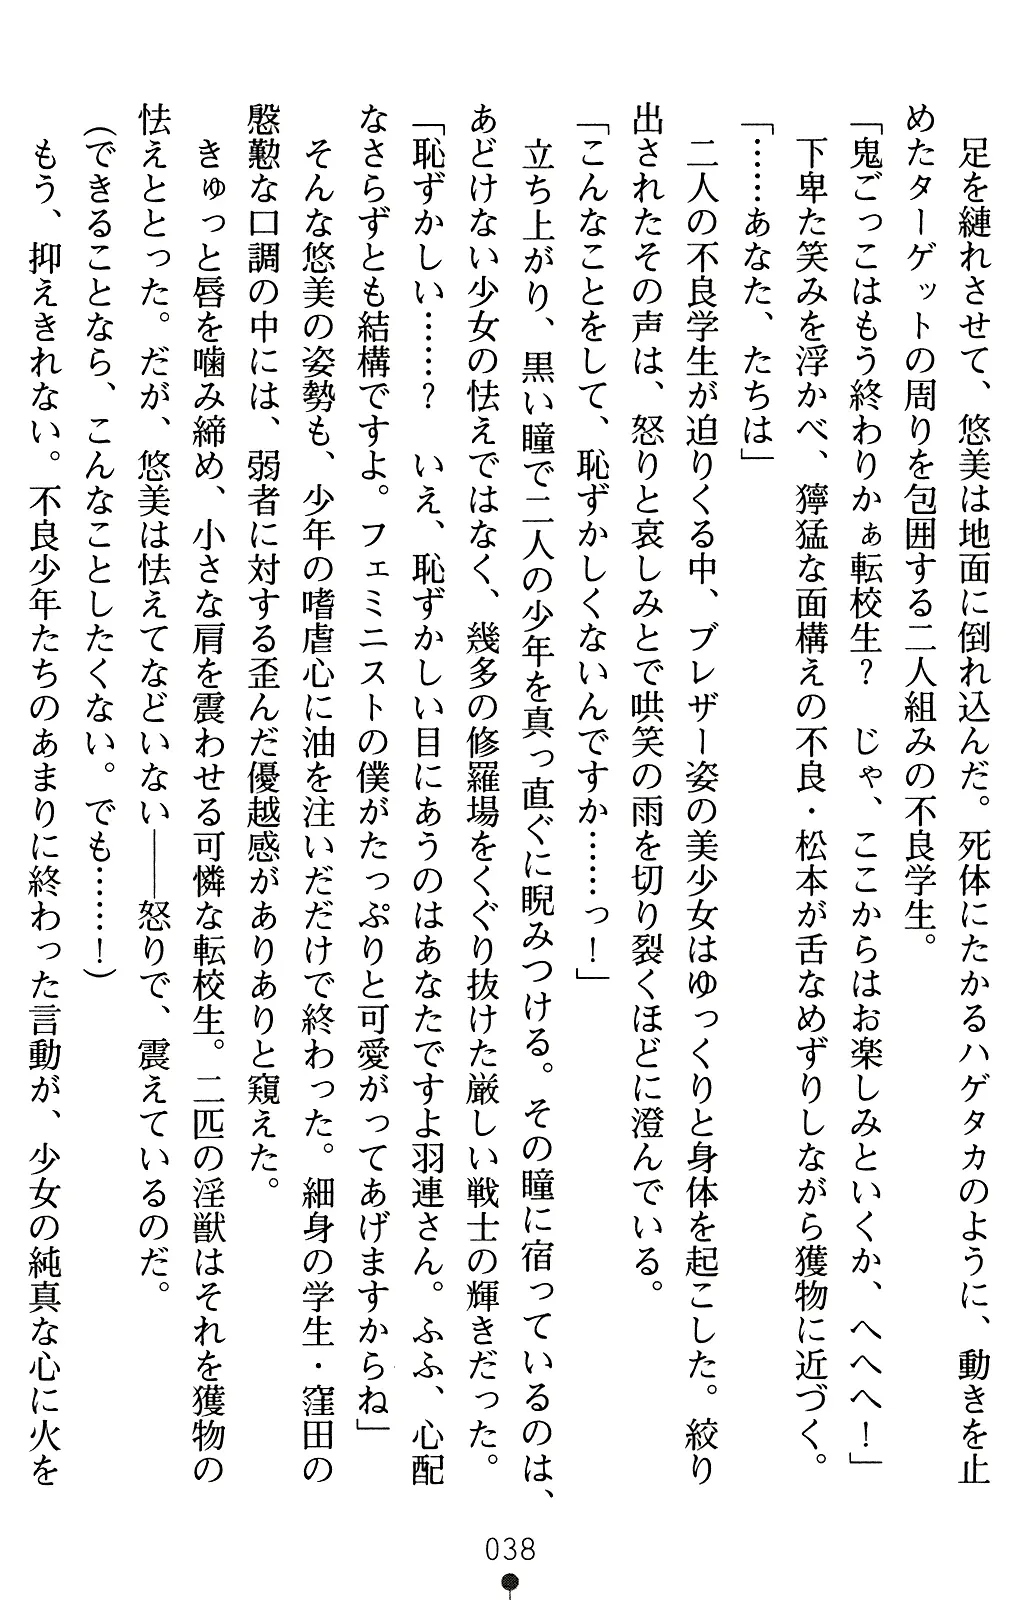 足を縺れさせて、悠美は地面に倒れ込んだ。死体にたかるハゲタカのように、動きを止
めたターゲットの周りを包囲する二人組みの不良学生。
「鬼ごっこはもう終わりかぁ転校生？　じゃ、ここからはお楽しみといくか、へへへ！」
下卑た笑みを浮かべ、獰猛な面構えの不良・松本が舌なめずりしながら獲物に近づく。
「……あなた、たちは」
二人の不良学生が迫りくる中、ブレザー姿の美少女はゆっくりと身体を起こした。絞り
出されたその声は、怒りと哀しみとで哄笑の雨を切り裂くほどに澄んでいる。
「こんなことをして、恥ずかしくないんですか……っ！」
立ち上がり、黒い瞳で二人の少年を真っ直ぐに睨みつける。その瞳に宿っているのは、
あどけない少女の怯えではなく、幾多の修羅場をくぐり抜けた厳しい戦士の輝きだった。
「恥ずかしい……？　いえ、恥ずかしい目にあうのはあなたですよ羽連さん。ふふ、心配
なさらずとも結構ですよ。フェミニストの僕がたっぷりと可愛がってあげますからね」
そんな悠美の姿勢も、少年の嗜虐心に油を注いだだけで終わった。細身の学生・窪田の
慇懃な口調の中には、弱者に対する歪んだ優越感がありありと窺えた。
きゅっと唇を噛み締め、小さな肩を震わせる可憐な転校生。二匹の淫獣はそれを獲物の
怯えととった。だが、悠美は怯えてなどいない――怒りで、震えているのだ。
（できることなら、こんなことしたくない。でも……！）
もう、抑えきれない。不良少年たちのあまりに終わった言動が、少女の純真な心に火を
038